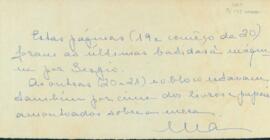 Estas páginas (19 e comêço de 20)
foram as últimas batidas à máqui-
na por Sergio.
As outras (20 e 21) no bloco estavam
também por cima dos livros e papeis
amontoados sobre a mesa.